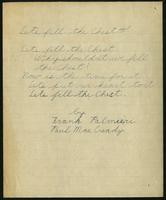 Lets fill the Chest
Lets fill the Chest
Why shouldn't we fill
the Chest!
Now is the time for it
Lets put our heart to it
Lets fill the Chest.
by
Frank Palmieri
Paul Mac Cready